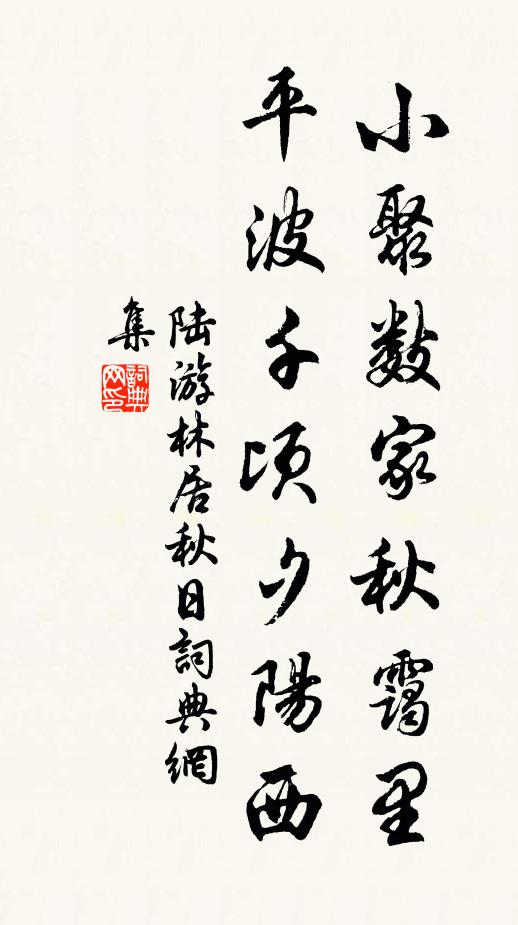 小聚數家秋靄里
平波千頃夕陽西
陸游林居秋日詞典網
集
詞典
网印